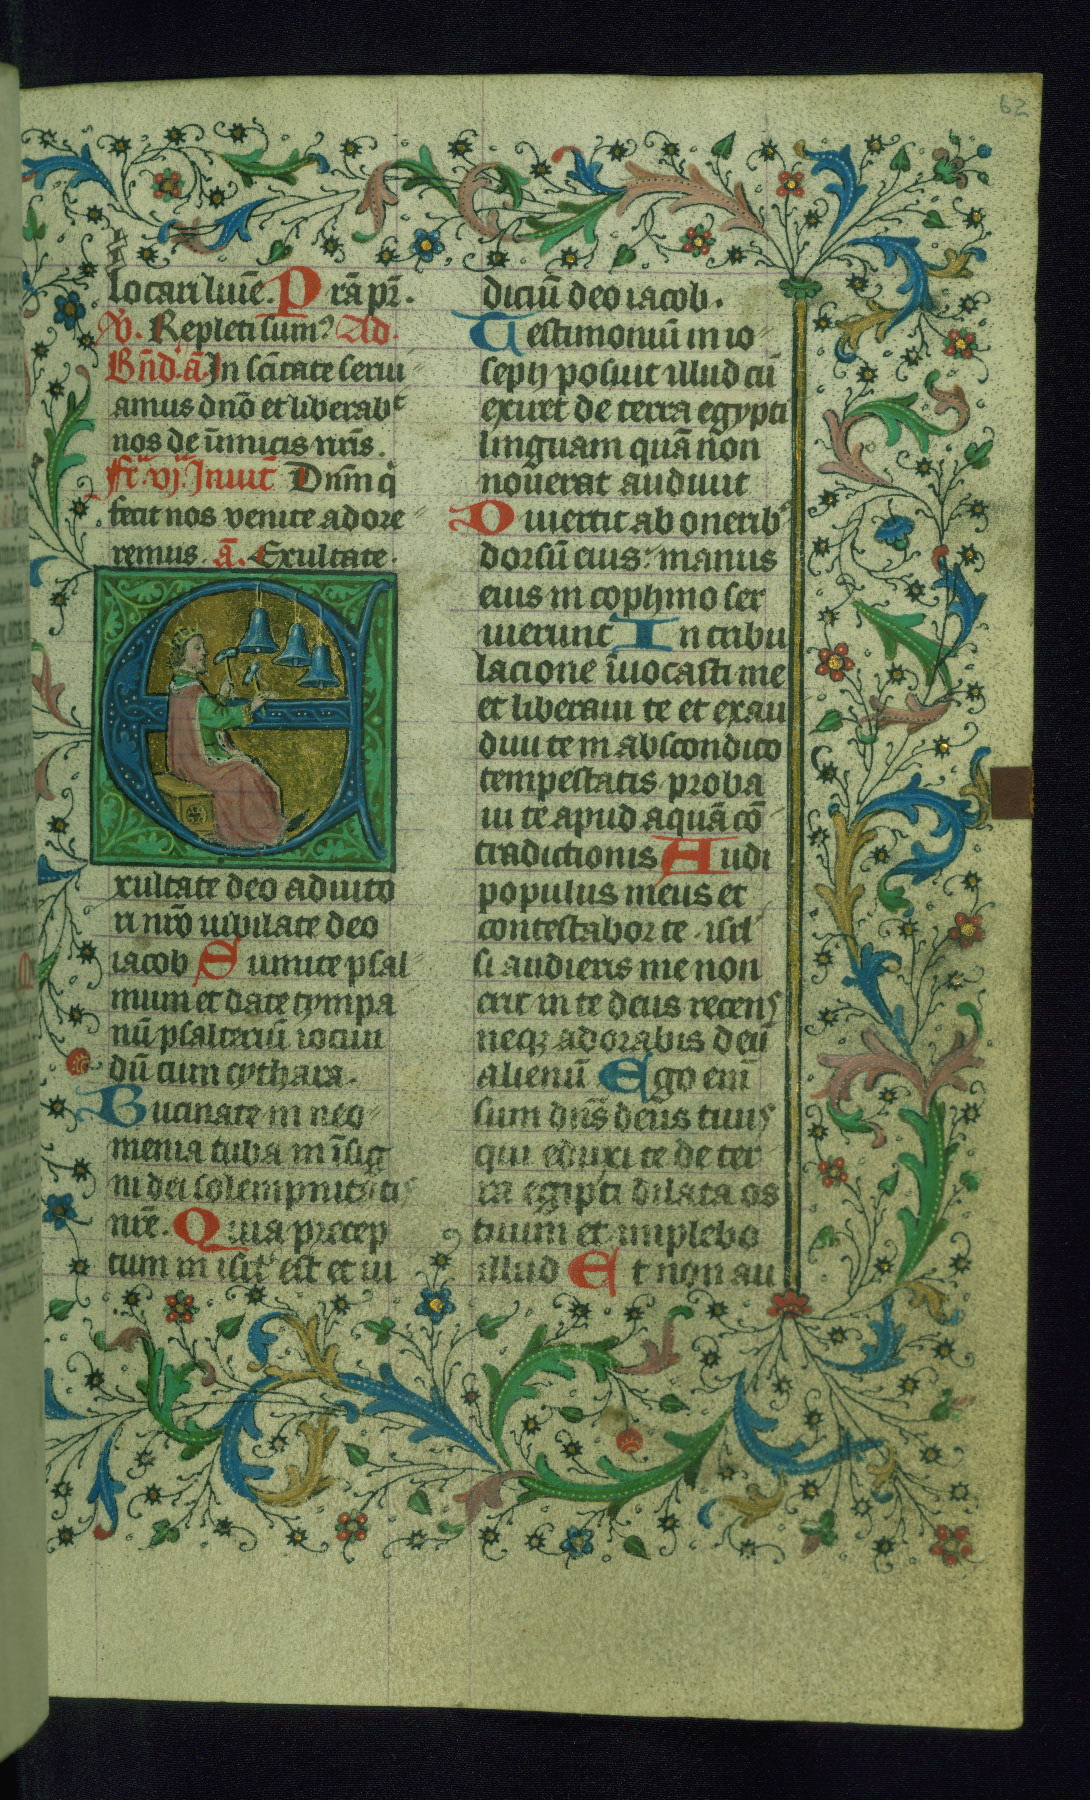 62
locari sume. Pr̄a pr̄.
V̄. Repleti sumꝰ Ad
Bn̄d. ā In sc̄itate serui
amus dn̄o et liberabᵗ
nos de inimicis nr̄is.
Fr̄. vj. Inuit̄ Dn̄m qͥ
fecit nos venite adore
remus. ā. Exultate.
Exultate deo adiuto
ri nr̄o iubilate deo
iacob Sumite psal
mum et date tympa
nū psalteriū iocun
dū cum cythara.
Bucinate in neo
menia tuba in īsig
ni dei solempnitatis
nr̄e. Quia precep
tum in isrl̄ est et iu
diciū deo iacob.
Testimoniū in io
seph posuit illud cū
exiret de terra egypti
linguam quā non
nouerat audiuit
Diuertit ab oneribꝰ
dorsū eius: manus
eius in cophino ser
uierunt In tribu
lacione īuocasti me
et liberaui te et exau
diui te in abscondito
tempestatis proba
ui te apud aquā cō
tradictionis Audi
populus meus et
contestabor te isrl̄
si audieris me non
erit in te deus recens
neqꝫ adorabis deū
alienū Ego eni̅
sum dn̄s deus tuus
qui eduxi te de ter
ra egipti dilata os
tuum et implebo
illud Et non au